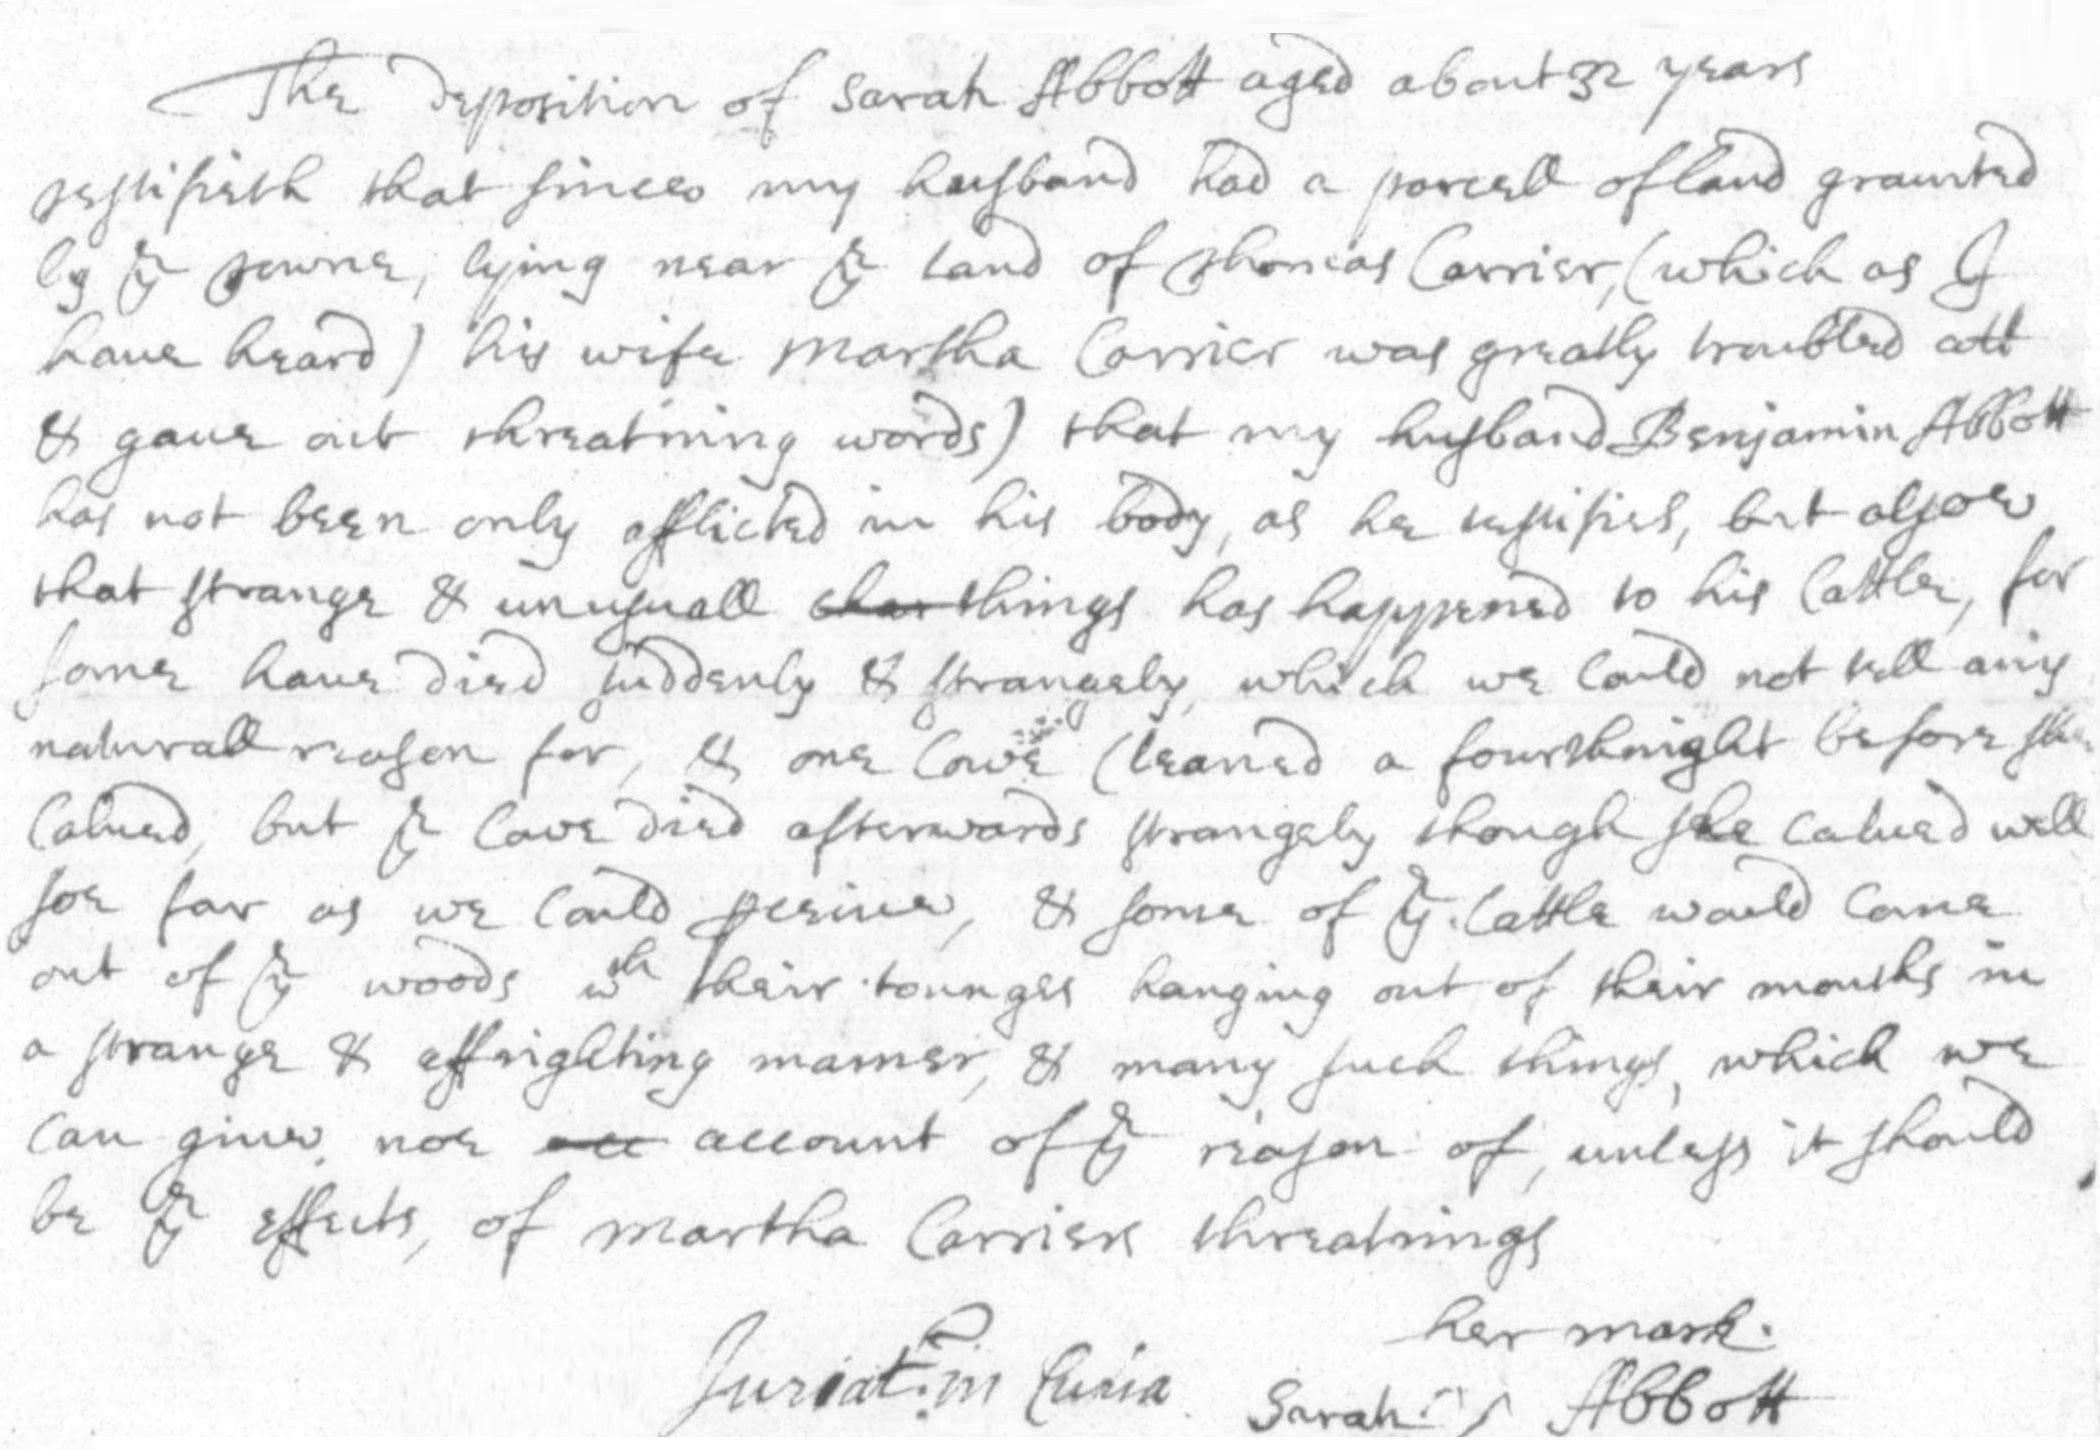 The deposition of Sarah Abbott aged about 32 years
testifieth that since my husband had a parcell of land graunted
by ye towne, lying near ye land of Thomas Carrier, (which as I
haue heard) his wife Martha Carrier was greatly troubled att
& gaue out threatning words) that my husband Benjamin Abbott
has not been only afflicted in his body, as he testifies, but alsoe
that strange & unusuall things has happened to his Cattle, for
some haue died suddenly & strangely, which we could not tell any
naturall reason for, & one Cowe Cleaned a fourthnight before she
Calued, but ye Cowe died afterwards strangely though she calued well
soe far as we could perciue, & some of ye Cattle would come
out of ye woods wth their tounges hanging out of their mouths in
a strange & affrighting manner, & many such things, which we
can giue noe acc account of ye reason of, unless it should
be ye effects, of Martha Carriers threatnings
her mark.
Jurat in Curia Sarah Abbott